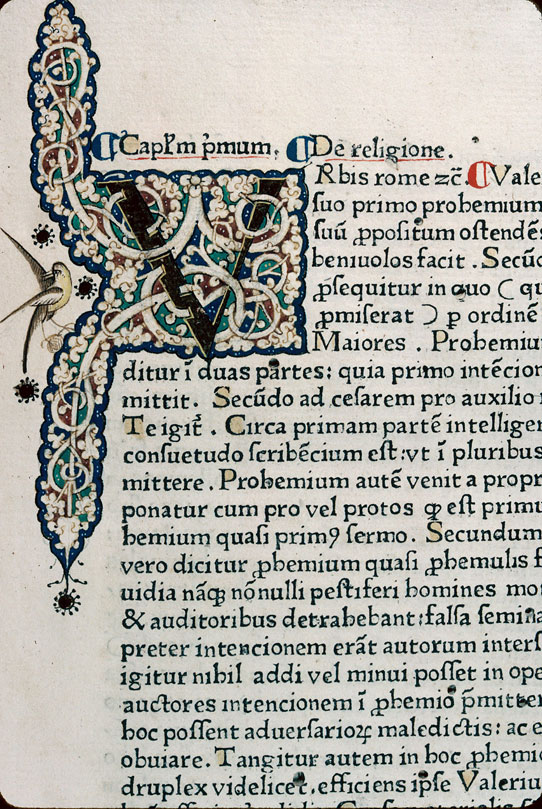 Capl'm p̄mum. De religione.
VRbis rome ⁊c̃. Vale
suo primo probemium
suū ꝓpositum ostendēs
beniuolos facit . Secūd
ꝓsequitur in quo ( qu
p̄miserat ) ꝑ ordinē
Maiores . Probemiu
ditur ī duas partes: quia primo intēcion
mittit. Secūdo ad cesarem pro auxilio
Te igit᷑ . Circa primam partē intelligen
consuetudo scribēcium est: vt ī pluribus
mittere . Probemium autē venit a propr
ponatur cum pro vel protos qđ est primu
hemium quasi primꝰ sermo. Secundum
vero dicitur ꝓhemium quasi ꝓhemulis f
uidia nāqꝫ nōnulli pestiferi homines mo
& auditoribus detrahebant: falsa semina
preter intencionem erāt autorum inters
igitur nihil addi vel minui posset in ope
auctores intencionem ī ꝓhemio p̄mitter
hoc possent aduersarioꝝ maledictis: ac e
obuiare. Tangitur autem in hoc ꝓhemio
druplex videlicet. efficiens ipse Valeriu